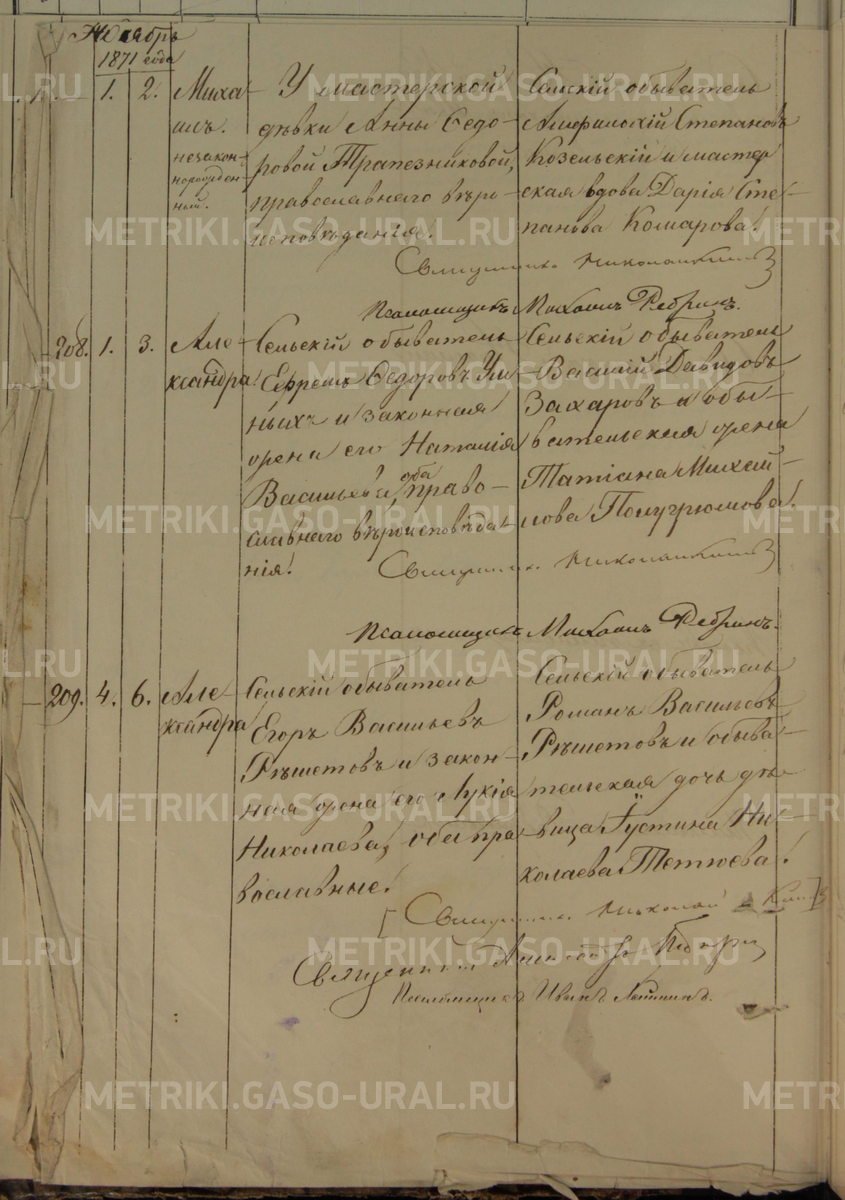 Ноябрь
1871 года
1. 2. Миха-
илъ.
незакон-
норожден-
ный.
У мастерской
дѣвки Анны Ѳедо-
ровой Трапезниковой,
православнаго вѣро-
исповѣданія.
Сельскій обыватель
Степановъ
Козельскій и мастер
ская вдова Дарія Сте-
панова Комарова.
Священникъ
Псаломщикъ Михаилъ Ребринъ.
208. 1. 3. Але-
ксандра
Сельскій обыватель
Ефремъ Ѳедоровъ Ум
ныхъ и законная
жена его Наталія
Васильева, оба право-
славнаго вѣроисповѣда-
нія.
Сельскій обыватель
Василій Давидовъ
Захаровъ и обы-
вательская жена
Татіана Михай-
лова Полугрюмова.
Священникъ
Псаломщикъ Михаилъ Ребринъ.
209. 4. 6. Але-
ксандра
Сельскій обыватель
Егоръ Васильевъ
Рѣшетовъ и закон-
ная жена его Лукія
Николаева, оба пра
вославные.
Сельскій обыватель
Романъ Васильевъ
Рѣшетовъ и обыва-
тельская дочь дѣ-
вица Іустина Ни-
колаева Тетюева.
Священникъ Николай
Священникъ
Псаломщикъ Иванъ
METRIKI.GASO-URAL.RU